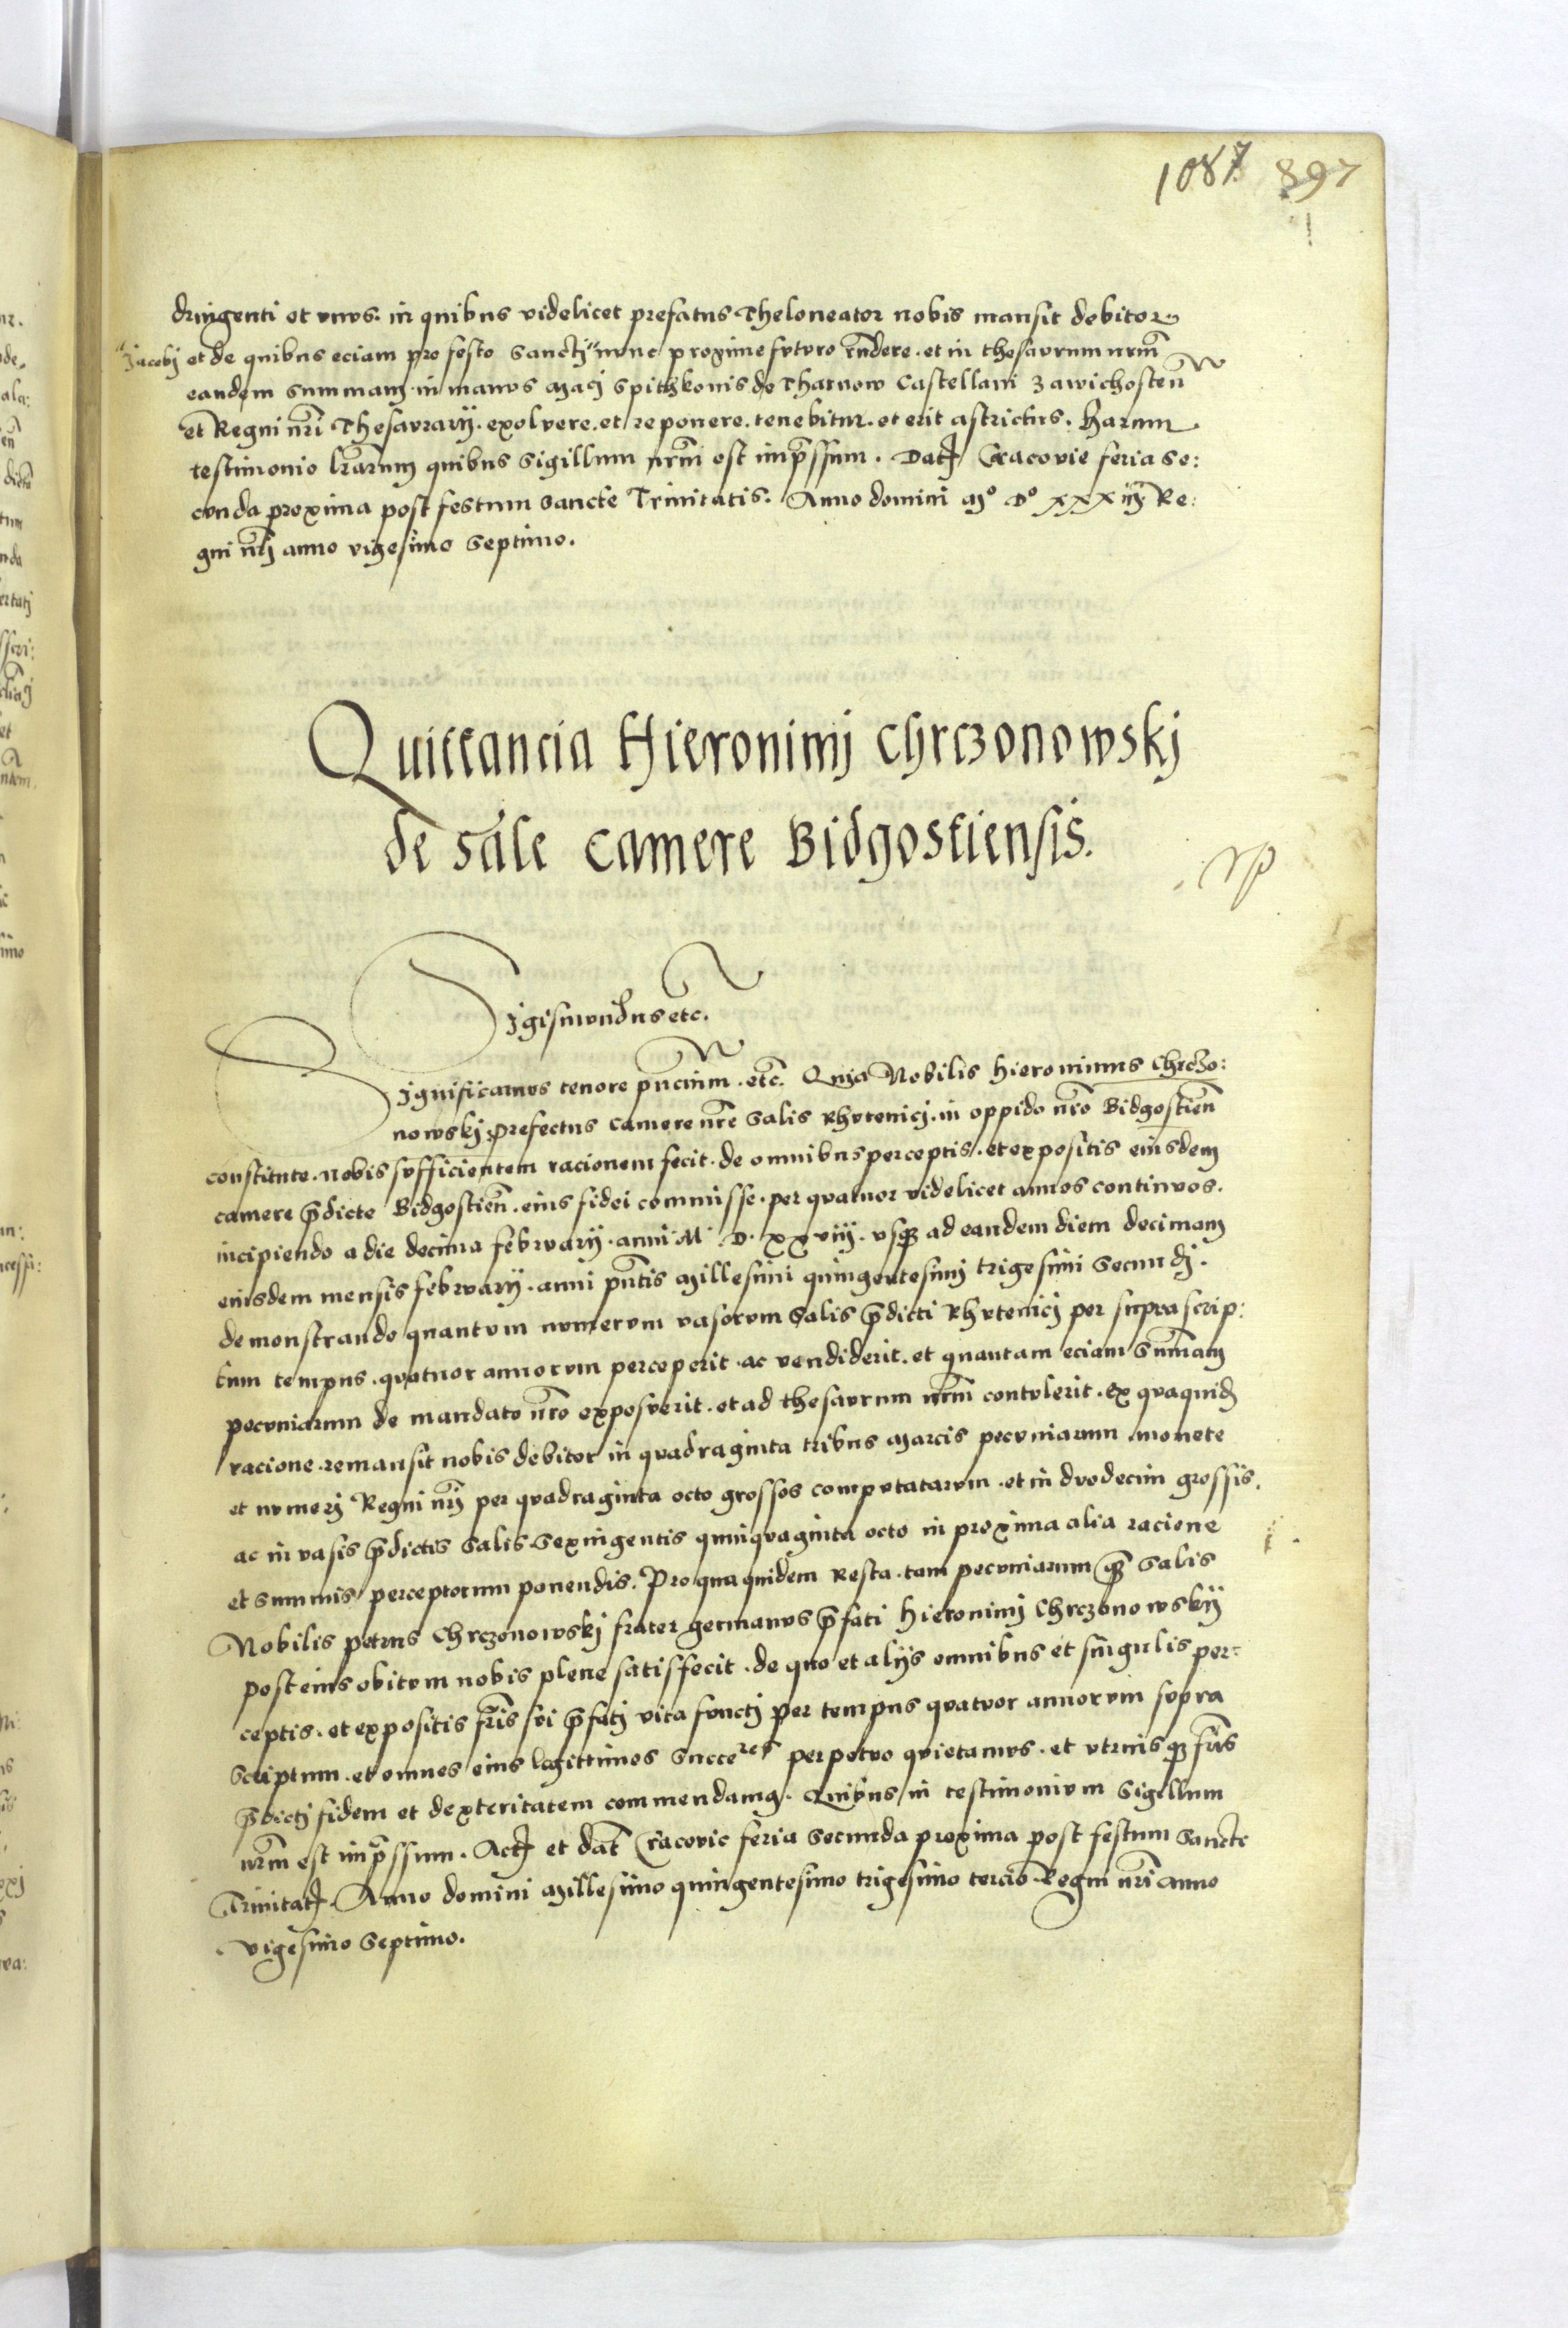 1087 897
dringenti et unus. in quibus videlicet prefatus Theloneator nobis mansit debitor
"Jacobj et de quibus eciam pro festo Sanctj" nunc proxime futuro rñdere. et in thesaurum nrm̃
eandem summam in manus Mgcj Spitkonis de Tharnow Castellani Zawichosteñ
et Regni nr̃i Thesaurarij. exolvere. et reponere. tenebitur. et erit astrictus. Harum
testimonio lr̃arum quibus Sigillum nrm̃ est impr̃ssum. Datj Cracovie feria se:
cunda proxima post festum Sancte Trinitatis. Anno domini Mº Dº XXX iij Re:
gni nr̃j anno vigesimo septimo.
Quittancia Hieronimj Chrczonowskj
de sale Camere Bidgostiensis.
Sigismundus etc.
Significamus tenore pñcium. etc. Quia Nobilis Hieronimus Chrczo:
nowskj prefectus camere nr̃e Salis Rhutenicj. in oppido nr̃o Bidgostieñ
constitute. nobis sufficientem racionem fecit. de omnibus perceptis. et expositis eiusdem
camere p̃dicte Bidgostieñ. eius fidei commisse. per quatuor videlicet annos continuos.
incipiendo a die decima februarij. anni M. D. XXviij. usq3 ad eandem diem decimam
eiusdem mensis februarij. anni pñtis Millesimi quingentesimj trigesimi secundj.
demonstrando quantum numerum vasorum Salis p̃dicti Rhutenicj per suprascrip:
tum tempus. quatuor annorum perceperit. ac vendiderit. et quantam eciam sum̃am
pecuniarum de mandato nr̃o exposuerit. et ad thesaurum nrm̃ contulerit. Ex quaquid̃
racione. remansit nobis debitor in quadraginta tribus Marcis pecuniarum monete
et numerj Regni nr̃j per quadraginta octo grossos computatarum. et in duodecim grossis.
ac in vasis p̃dictis Salis. Sexingentis quinquaginta octo in proxima alia racione
et summis perceptorum ponendis. Pro qua quidem Resta. tam pecuniarum q̃3 Salis
Nobilis petrus Chrczonowskj frater germanus p̃fati Hieronimj Chrczonowskij
post eius obitum nobis plene satisfecit. de quo et alijs omnibus et singulis per:
ceptis. et expositis fr̃is sui p̃fatj vita functj per tempus quatuor annorum supra
scriptum. et omnes eius legittimos succeres perpetuo quietamus. et utriusq3 fr̃is
p̃dictj fidem et dexteritatem commendamq. Quibus in testimonium Sigillum
nrm̃ est imp̃ssum. Actj et dat̃ Cracovie feria secunda proxima post festum Sancte
Trinitatj. Anno domini Millesimo quingentesimo trigesimo tercio Regni nr̃i anno
vigesimo septimo.